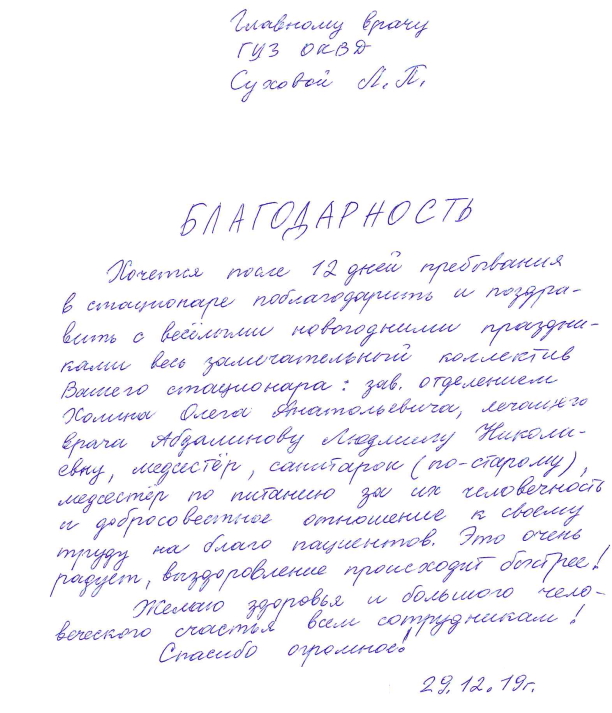 Главному врачу
ГУЗ ОКВД
Суховой Л.П.
БЛАГОДАРНОСТЬ
Хочется после 12 дней пребывания
в стационаре поблагодарить и поздра-
вить с весёлыми новогодними праздни-
ками весь замечательный коллектив
Вашего стационара: зав. отделением
Холина Олега Анатольевича, лечащего
врача Абдалинову Людмилу Никола-
евну, медсестёр, санитарок (по-старому),
медсестёр по питанию за их человечность
и добросовестное отношение к своему
труду на благо пациентов. Это очень
радует, выздоровление происходит быстрее!
Желаю здоровья и большого чело-
веческого счастья всем сотрудникам!
Спасибо огромное!
29.12.19г.